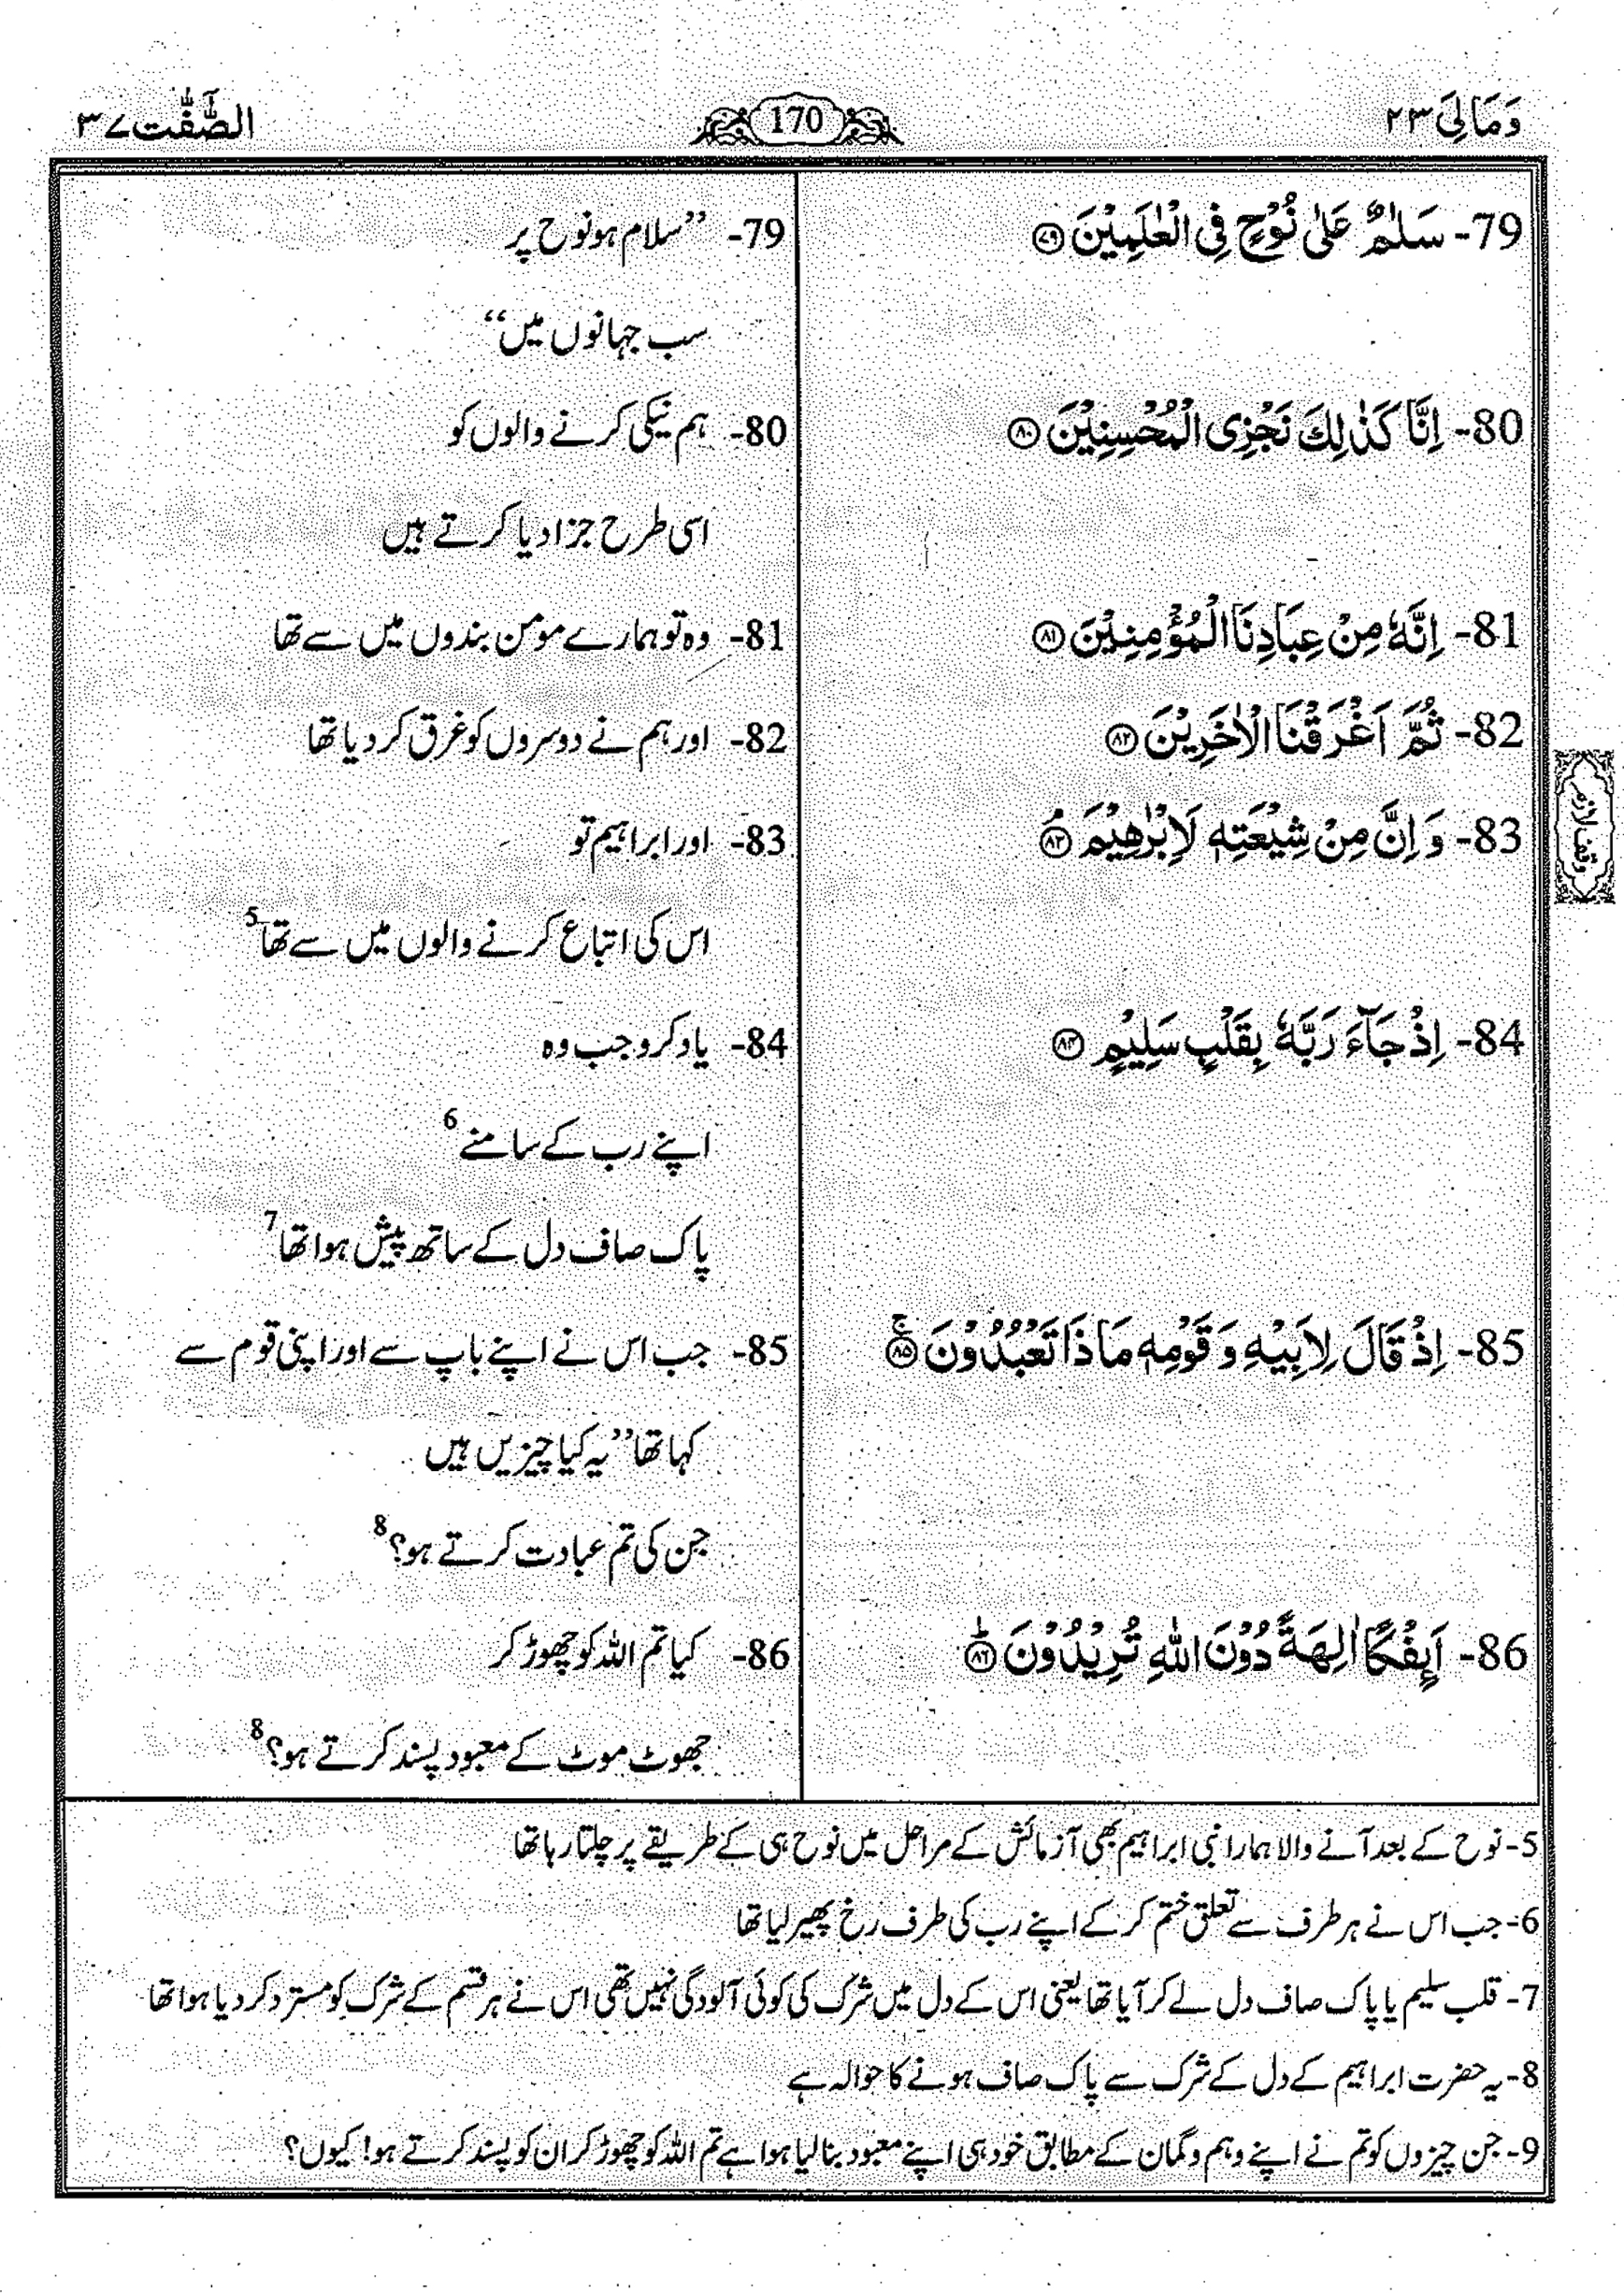 وَمَالِیَ ۲۳
170
الصّٰٓفّٰت ۳۷
79- سَلٰمٌ عَلٰی نُوْحٍ فِی الْعٰلَمِیْنَ ﴿۷۹﴾
79- ”سلام ہو نوح پر
سب جہانوں میں“
80- اِنَّا كَذٰلِكَ نَجْزِی الْمُحْسِنِیْنَ ﴿۸۰﴾
80- ہم نیکی کرنے والوں کو
اسی طرح جزا دیا کرتے ہیں
81- اِنَّهٗ مِنْ عِبَادِنَا الْمُؤْمِنِیْنَ ﴿۸۱﴾
81- وہ تو ہمارے مومن بندوں میں سے تھا
82- ثُمَّ اَغْرَقْنَا الْاٰخَرِیْنَ ﴿۸۲﴾
82- اور ہم نے دوسروں کو غرق کر دیا تھا
83- وَ اِنَّ مِنْ شِیْعَتِهٖ لَاِبْرٰهِیْمَ ﴿۸۳﴾ۘ
وقف لازم
83- اور ابراہیم تو
اس کی اتباع کرنے والوں میں سے تھا5
84- اِذْ جَآءَ رَبَّهٗ بِقَلْبٍ سَلِیْمٍ ﴿۸۴﴾
84- یاد کرو جب وہ
اپنے رب کے سامنے6
پاک صاف دل کے ساتھ پیش ہوا تھا7
85- اِذْ قَالَ لِاَبِیْهِ وَ قَوْمِهٖ مَاذَا تَعْبُدُوْنَ ﴿۸۵﴾ۚ
85- جب اس نے اپنے باپ سے اور اپنی قوم سے
کہا تھا ”یہ کیا چیزیں ہیں
جن کی تم عبادت کرتے ہو؟8
86- اَىِٕفْكًا اٰلِهَةً دُوْنَ اللّٰهِ تُرِیْدُوْنَ ﴿۸۶﴾ؕ
86- کیا تم اللہ کو چھوڑ کر
جھوٹ موٹ کے معبود پسند کرتے ہو؟8
5- نوح کے بعد آنے والا ہمارا نبی ابراہیم بھی آزمائش کے مراحل میں نوح ہی کے طریقے پر چلتا رہا تھا
6- جب اس نے ہر طرف سے تعلق ختم کر کے اپنے رب کی طرف رخ پھیر لیا تھا
7- قلب سلیم یا پاک صاف دل لے کر آیا تھا یعنی اس کے دل میں شرک کی کوئی آلودگی نہیں تھی اس نے ہر قسم کے شرک کو مسترد کر دیا ہوا تھا
8- یہ حضرت ابراہیم کے دل کے شرک سے پاک صاف ہونے کا حوالہ ہے
9- جن چیزوں کو تم نے اپنے وہم و گمان کے مطابق خود ہی اپنے معبود بنا لیا ہوا ہے تم اللہ کو چھوڑ کر ان کو پسند کرتے ہو! کیوں؟